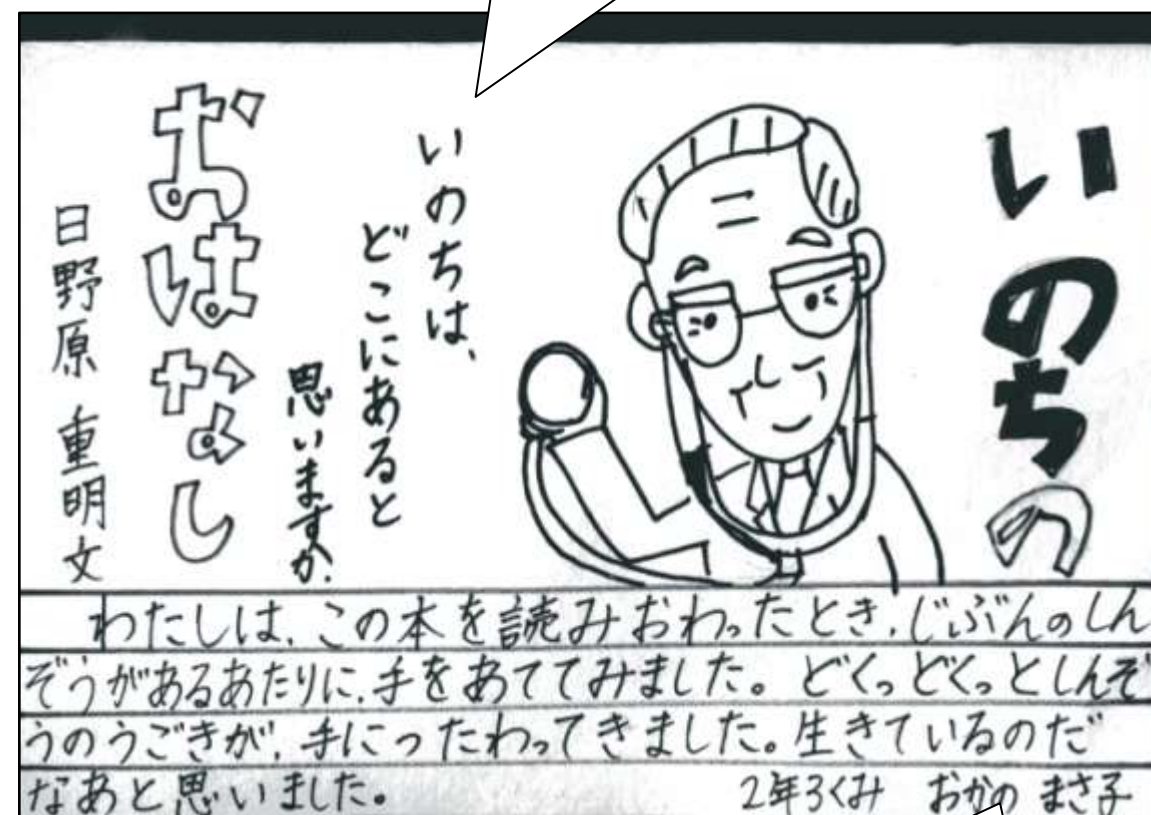 いのちの
いのちは、
どこにあると
思いますか。
おはなし
日野原 重明文
わたしは、この本を読みおわったとき、じぶんのしん
ぞうがあるあたりに、手をあててみました。どくっどくっとしんぞ
うのうごきが、手につたわってきました。生きているのだ
なあと思いました。
2年3くみ おかの まさ子